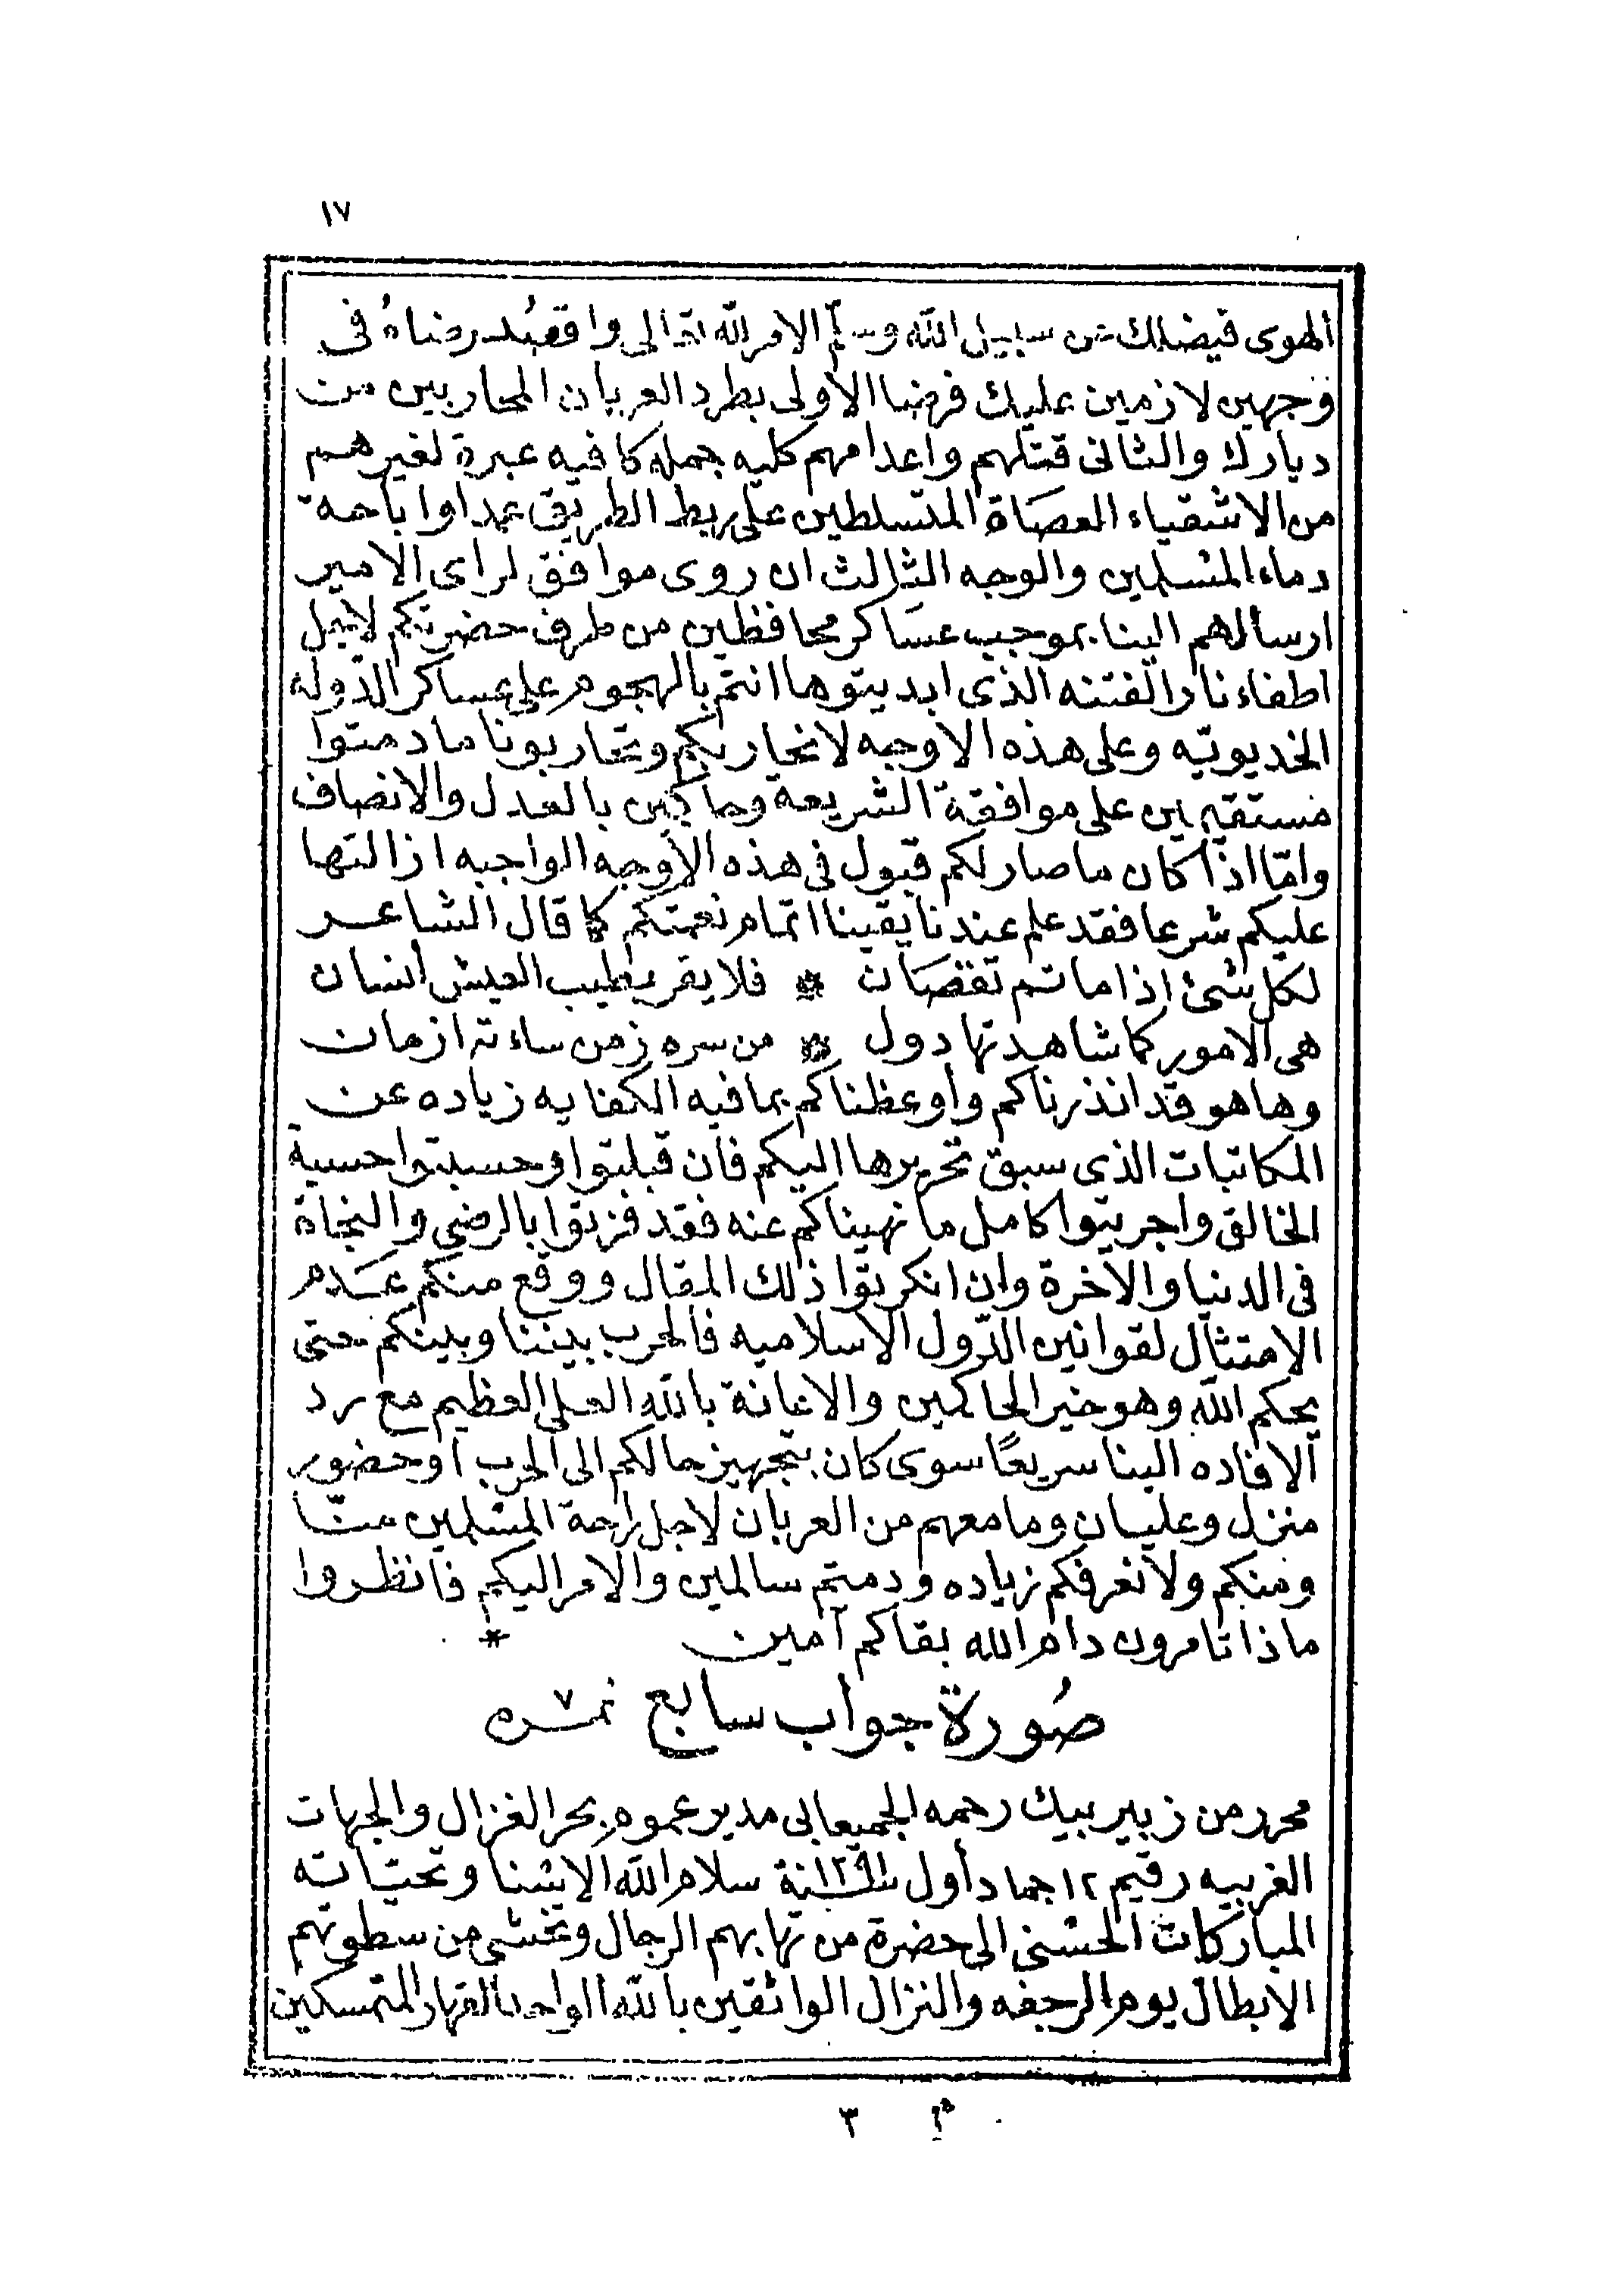 ١٧
الهوى فيضلك عن سبيل الله وسلّم الامر لله تعالى واقصُد رضاهُ فى
وجهين لازمين عليك فرضا الأولى بطرد العربان المحاربين من
ديارك والثانى قتلهم واعدامهم كليه جمله كافيه عبرة لغيرهم
من الاشقياء العصاة المتسلطين على ربط الطريق عمدا واباحة
دماء المسلمين والوجه الثالث ان روى موافق لراى الامير
ارسالهم الينا بموجب عساكر محافظين من طرف حضرتكم لاجل
اطفاء نار الفتنه الذى ابديتوها انتم بالهجوم على عساكر الدّوله
الخديويّه وعلى هذه الاوجه لا نحاربكم وتحاربونا ما دمتوا
مستقيمين على موافقة الشريعة وحاكمين بالعدل والانصاف
وامّا اذا كان ما صار لكم قبول فى هذه الأوجه الواجبه ازالتها
عليكم شرعا فقد علم عندنا يقينا اتمام نعمتكم كما قال الشاعر
لكل شئ اذا ما تم نقصان * فلا يغر بطيب العيش أنسان
هى الامور كما شاهدتها دول * من سره زمن ساءته ازمان
وها هو قد انذرناكم وأوعظناكم بما فيه الكفايه زياده عن
المكاتبات الذى سبق تحريرها اليكم فان قبلتوا وحسبتوا حسبة
الخالق واجريتوا كامل ما نهيناكم عنه فقد فزيتوا بالرضى والنجاة
فى الدنيا والاخرة وان انكريتوا ذلك المقال ووقع منكم عدم
الامتثال لقوانين الدّول الاسلاميه فالحرب بيننا وبينكم حتى
يحكم الله وهو خير الحاكمين والاعانة بالله العلى العظيم مع رد
الافاده الينا سريعًا سوى كان بتجهيز حالكم الى الحرب او حضور
منزل وعليان وما معهم من العربان لاجل راحة المسلمين منّا
ومنكم ولا نعرفكم زياده ودمتم سالمين والامر اليكم فانظروا
ماذا تامرون دام الله بقاكم آمين *
صُورة جواب سابع نمره ٧
محرر من زبير بيك رحمه الجميعابى مدير عموم بحر الغزال والجهات
الغربيه رقيم ١٢ جماد أول سنة ١٢٩١ سلام الله الاسنا وتحيّاته
المباركات الحسنى الى حضرة من تهابهم الرجال وتخشى من سطوتهم
الابطال يوم الرجفه والنزال الواثقين بالله الواحد القهار المتمسكين
٣